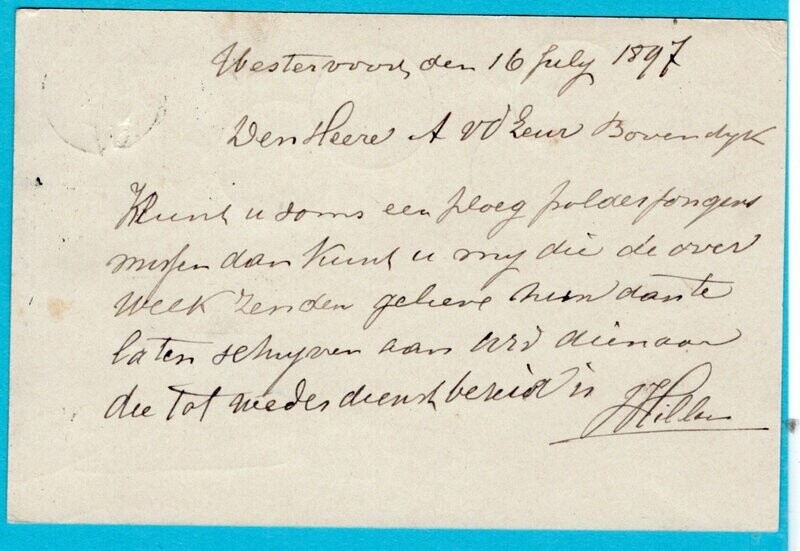 Westervoort, den 16 July 1897
Den Heere A vd Leur Bovendyk
Kunt u soms een ploeg polderjongens
missen dan kunt u my die de over
week zenden gelieve hun dan te
laten schryven aan uw dienaar
die tot wederdienst bereid is